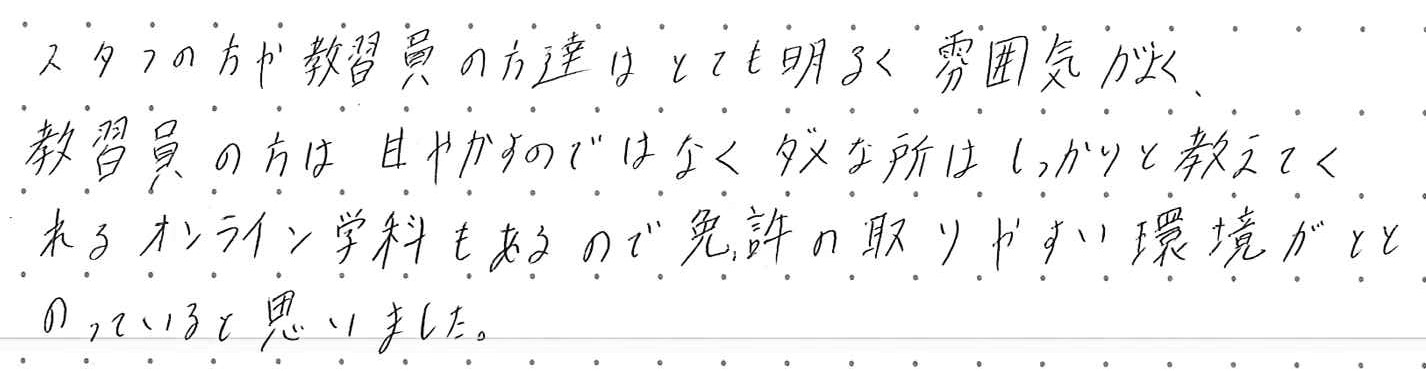 スタフの方や教習員の方達はとても明るく雰囲気がよく、
教習員の方は甘やかすのではなくダメな所はしっかりと教えてく
れるオンライン学科もあるので免許の取りやすい環境がとと
のっていると思いました。